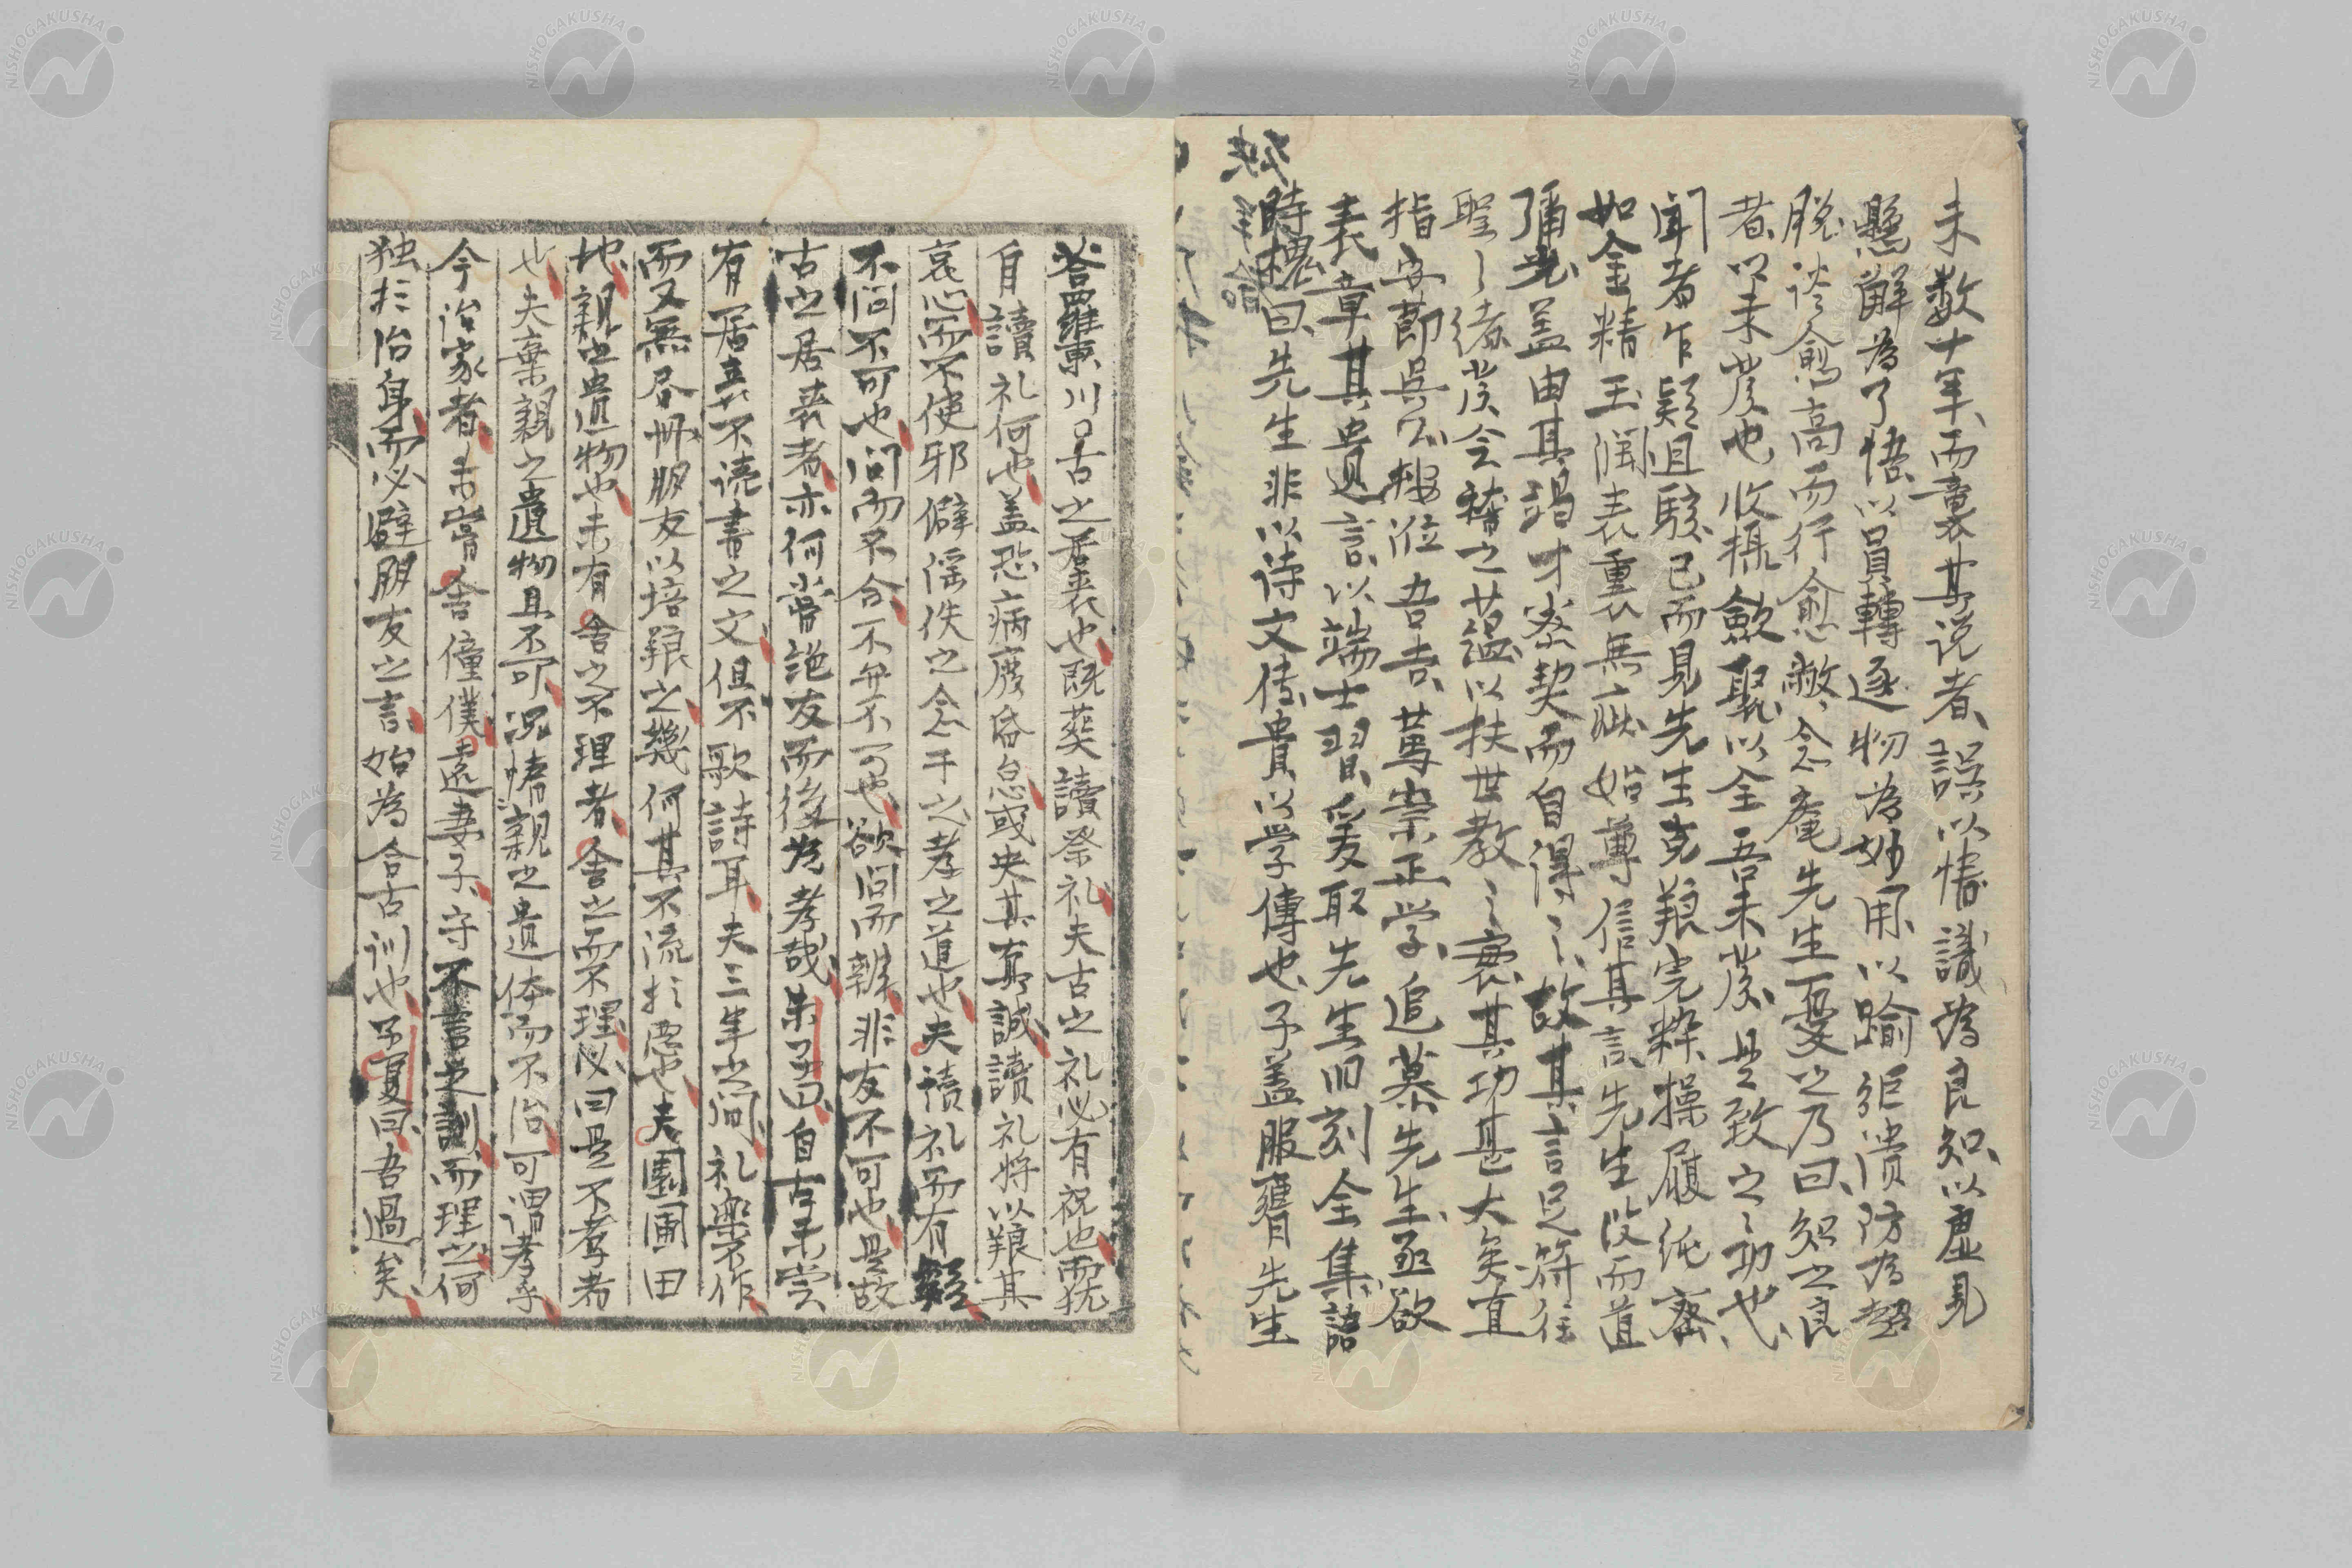 未数十年、而襲其説者、誤以情識為良知、以虚見
懸解為了悟、以員轉逐物為妙用、以踰矩潰防為超
脱、談愈高而行愈敝、念菴先生憂之乃曰、知之良
者、以未発也、收攝斂聚、以全吾未発、是致之之功也、
聞者乍疑且駭、已而見先生克艱完粹操履純密
如金精玉潤表重衣無疵、始尊信其言、先生没而道
彌光、盖由其竭才密契而自得之、故其言足符往
聖之緒、発今稽之蘊、以扶世教之衰、其功甚大矣、直
指安節呉公按涖吾吉、篤崇正学、追慕先生、亟欲
表章其遺言、以端士習、爰取先生旧刻全集、語
時槐曰、先生非以詩文傳、貴以学傳也、予盖服膺先生
答羅東川
古之居喪也既葬讀祭礼夫古之礼必有祝也而犹
自讀礼何也盖恐病廢昏怠或失其真誠讀礼將以艱其
哀心而不使邪僻淫佚之念干之孝之道也夫讀礼而有疑
不问不可也问而不合不弁不可也欲问而辨非友不可也是故
古之居喪者亦何嘗絶友而後為孝哉朱子曰自古未尝
有居喪不读書之文但不歌詩耳夫三年之间礼楽不作
而又無尽册朋友以培艱之幾何其不流於惡也夫園圃田
地親之遺物也未有舍之不理者舍之而不理必曰是不孝者
也夫棄親之遺物且不可况情親之遺体而不治可谓孝乎
今治家者未嘗舍僮僕遠妻子守不言之訓而理之何
独於治身而必避朋友之言始為合古训也子夏曰吾過矣